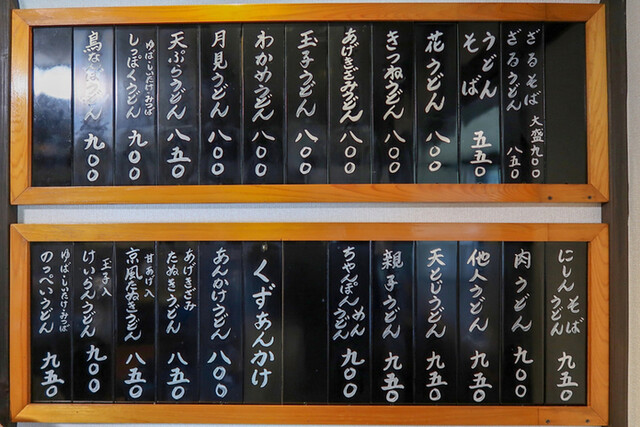 ざるそば 大盛九〇〇
ざるうどん 八五〇
うどん
そば 五五〇
花うどん 八〇〇
きつねうどん 八〇〇
あげきざみうどん 八〇〇
玉子うどん 八〇〇
わかめうどん 八〇〇
月見うどん 八〇〇
天ぷらうどん 八五〇
ゆば・しいたけ・みつば
しっぽくうどん 九〇〇
鳥なんばうどん 九〇〇
にしんそば
うどん 九五〇
肉うどん 九〇〇
他人うどん 九五〇
天とじうどん 九五〇
親子うどん 九五〇
ちゃんぽんめん
うどん 九〇〇
くずあんかけ
あんかけうどん 八〇〇
あげきざみ
たぬきうどん 八五〇
甘あげ入
京風たぬきうどん 八五〇
玉子入
けいらんうどん 九〇〇
ゆば・しいたけ・みつば
のっぺいうどん 九五〇